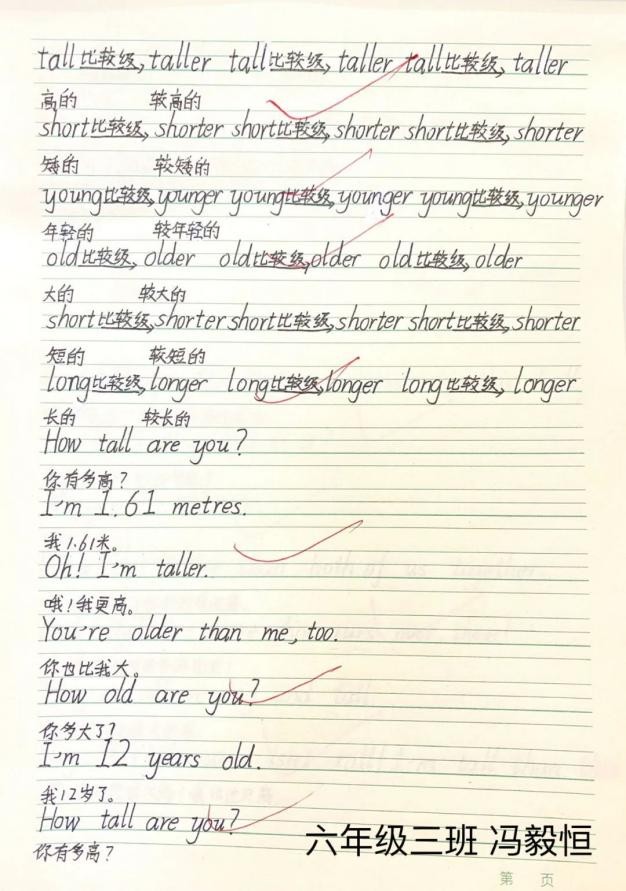 tall比较级,taller tall比较级,taller tall比较级,taller
高的 较高的
short比较级,shorter short比较级,shorter short比较级,shorter
矮的 较矮的
young比较级,younger young比较级,younger young比较级,younger
年轻的 较年轻的
old比较级,older old比较级,older old比较级,older
大的 较大的
short比较级,shorter short比较级,shorter short比较级,shorter
短的 较短的
long比较级,longer long比较级,longer long比较级,longer
长的 较长的
How tall are you?
你有多高?
I'm 1.61 metres.
我1.61米。
Oh! I'm taller.
哦!我更高。
You're older than me, too.
你也比我大。
How old are you?
你多大了?
I'm 12 years old.
我12岁了。
How tall are you?
你有多高?
六年级三班 冯毅恒
第 页